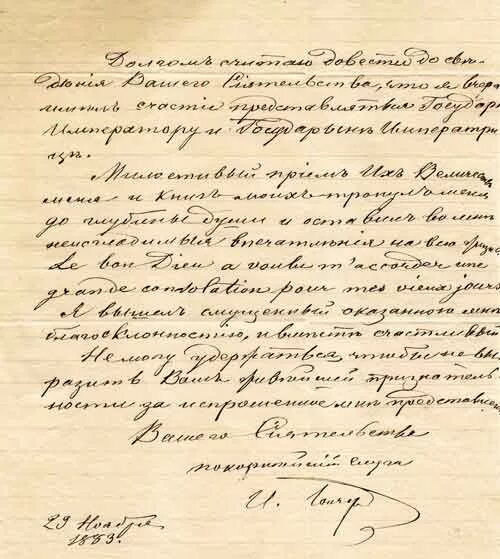 Долгомъ считаю довести до свѣ-
дѣнія Вашего Сіятельства, что я вчера
имѣлъ счастіе представляться Государю
Императору и Государынѣ Императри-
цѣ.
Милостивый пріемъ Ихъ Величествъ
меня и книгъ моихъ тронулъ меня
до глубины души и оставилъ во мнѣ
неизгладимыя впечатлѣнія на всю жизнь.
Le bon Dieu a voulu m'accorder une
grande consolation pour mes vieux jours.
Я вышелъ смущенный оказанною мнѣ
благосклонностію, и вмѣстѣ счастливый.
Не могу удержаться, чтобы не вы-
разить Вамъ живѣйшей признатель-
ности за испрошенное мнѣ представленіе.
Вашего Сіятельства
покорнѣйшій слуга
И. Гончар
29 Ноября
1883.